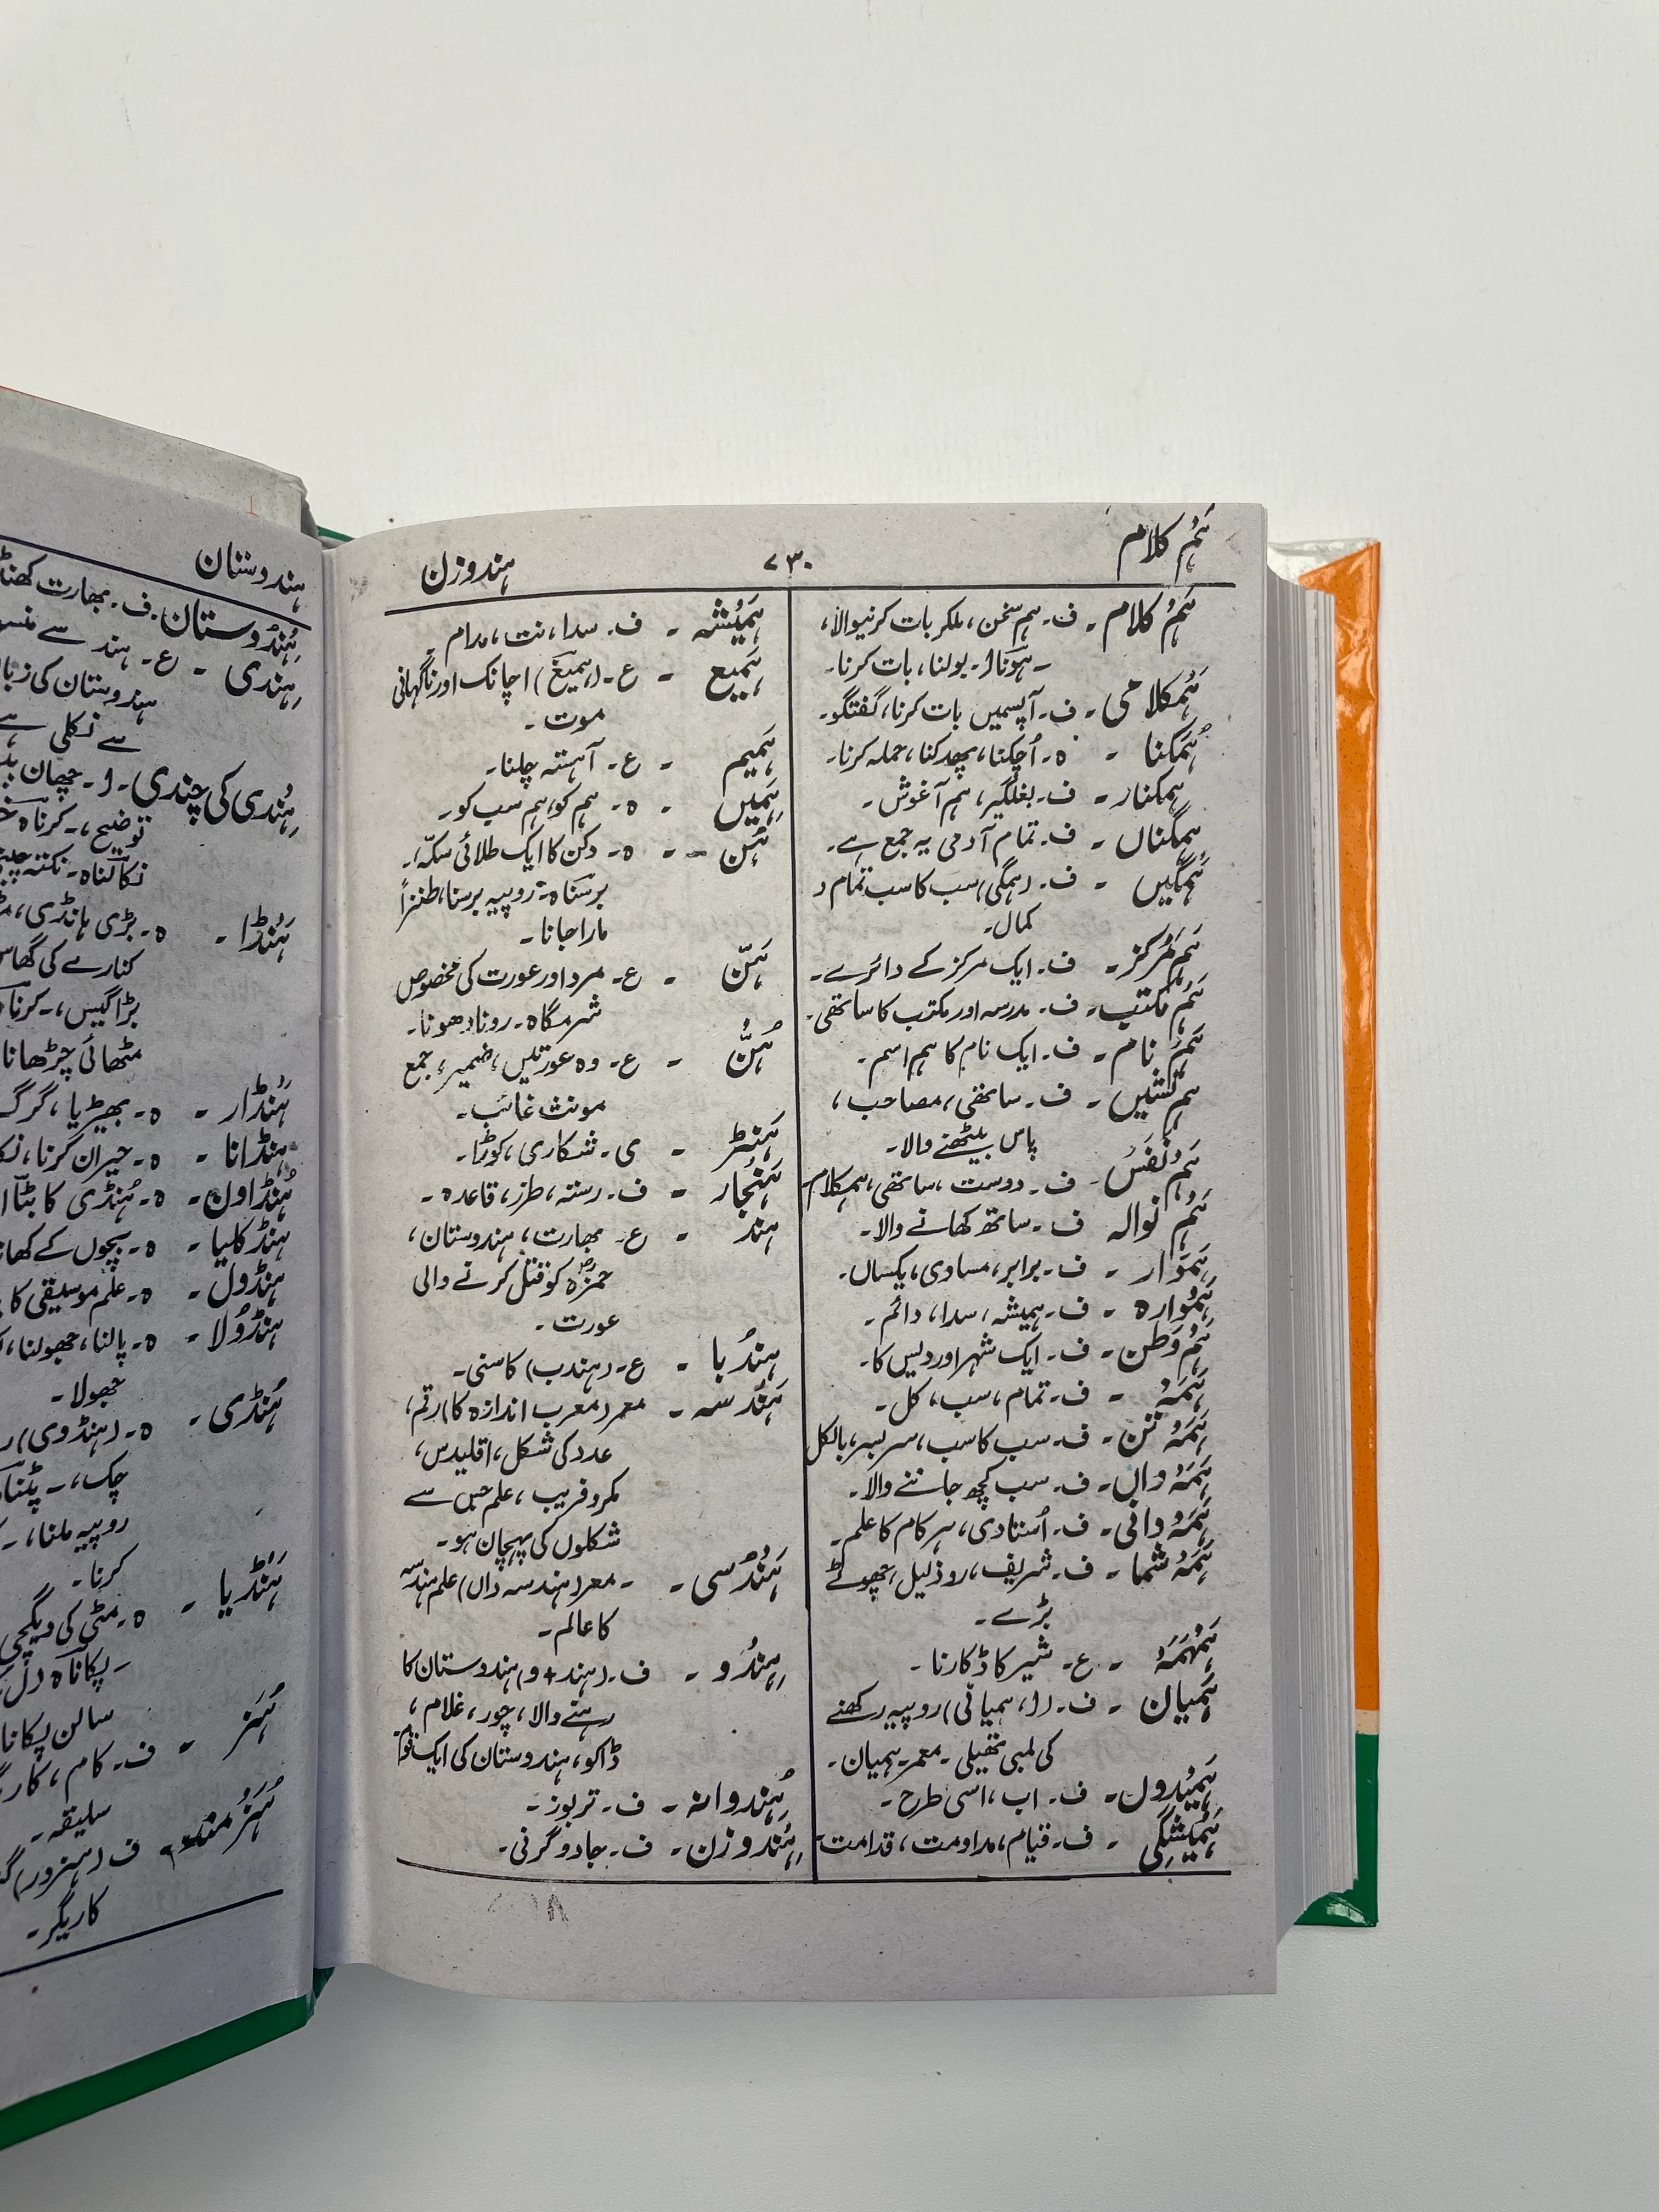 ہَم کلام ۷۳۰ ہندوزن
ہَم کلام ۔ ف۔ ہم سخن، ملکر بات کرنیوالا،
۔ ہَونا ا۔ بولنا، بات کرنا۔
ہَمکلامی ۔ ف۔ آپسمیں بات کرنا، گفتگو۔
ہُمَکنا ۔ ہ۔ اُچکنا، پھدکنا، حملہ کرنا۔
ہمکنار ۔ ف۔ بغلگیر، ہم آغوش ۔
ہمگناں ۔ ف۔ تمام آدمی یہ جمع ہے۔
ہَمگیں ۔ ف۔ (ہمگی) سب کا سب تمام و
کمال۔
ہَم مَرکز ۔ ف۔ ایک مرکز کے دائرے۔
ہَم مکتب ۔ ف۔ مدرسہ اور مکتب کا ساتھی۔
ہَم نام ۔ ف۔ ایک نام کا ہم اسم ۔
ہم نشیں ۔ ف۔ ساتھی، مصاحب،
پاس بیٹھنے والا۔
ہَم نَفَس ۔ ف۔ دوست، ساتھی، ہمکلام
ہَم نوالہ ف۔ ساتھ کھانے والا۔
ہَموار ۔ ف۔ برابر، مساوی، یکساں۔
ہَموارہ ۔ ف۔ ہمیشہ، سدا، دائم ۔
ہَم وَطن ۔ ف۔ ایک شہر اور دیس کا۔
ہَمَہ ۔ ف۔ تمام، سب، کل ۔
ہَمَہ تن ۔ ف۔ سب کا سب، سربسر، بالکل
ہَمَہ داں ۔ ف۔ سب کچھ جاننے والا۔
ہَمَہ دانی ۔ ف۔ اُستادی، ہر کام کا علم۔
ہَمَہ شما ۔ ف۔ شریف، رذیل، چھوٹے
بڑے ۔
ہَمہَمَہ ۔ ع۔ شیر کا ڈکارنا ۔
ہَمیان ۔ ف۔ (ا، ہمیانی) روپیہ رکھنے
کی لمبی تھیلی ۔ معر۔ ہمیان ۔
ہَمیدول ۔ ف۔ اب، اسی طرح ۔
ہَمیشگی ۔ ف۔ قیام، مداومت، قدامت۔
ہَمیشہ ۔ ف۔ سدا، نت، مدام ۔
ہَمیع ۔ ع۔ (ہمیغ) اچانک اور ناگہانی
موت ۔
ہَمیم ۔ ع۔ آہستہ چلنا۔
ہَمیں ۔ ہ۔ ہم کو، ہم سب کو۔
ہُن ۔ ہ۔ دکن کا ایک طلائی سکّہ،
برسنا ہ۔ روپیہ برسنا، طنزاً
مارا جانا ۔
ہَنّ ۔ ع۔ مرد اور عورت کی مخصوص
شرمگاہ ۔ رونا دھونا ۔
ہُنَّ ۔ ع۔ وہ عورتیں، ضمیر، جمع
مونث غائب ۔
ہَنٹر ۔ ی۔ شکاری، کوڑا۔
ہَنجار ۔ ف۔ رستہ، طرز، قاعدہ ۔
ہند ۔ ع۔ بھارت، ہندوستان،
حمزہؓ کو قتل کرنے والی
عورت ۔
ہندبا ۔ ع۔ (ہندب) کاسنی۔
ہَندسہ ۔ معر (معرب اندازہ کا) رقم،
عدد کی شکل، اقلیدس،
مکروفریب، علم جس سے
شکلوں کی پہچان ہو۔
ہَندسی ۔ ۔ معر (ہندسہ داں) علم ہندسہ
کا عالم ۔
ہِندُو ۔ ف۔ (ہند + و) ہندوستان کا
رہنے والا، چور، غلام،
ڈاکو، ہندوستان کی ایک قوم
ہِندوانہ ۔ ف۔ تربوز ۔
ہِندوزن ۔ ف۔ جادوگرنی ۔
ہندوستان
ہِندُوستان ۔ ف۔ بھارت
ہِندی ۔ ع۔ ہند سے
ہندوستان کی
سے نکلی
ہِندی کی چندی ۔ ا۔ چھان
توضیح، ۔ کرنا ہ
نکالنا ہ۔ نکتہ
ہَنڈا ۔ ہ۔ بڑی ہانڈی،
کنارے کی گھاس
بڑا گیس، ۔ کرنا
مٹھائی چڑھانا
ہُنڈار ۔ ہ۔ بھیڑیا، گرگ
ہنڈانا ۔ ہ۔ حیران کرنا،
ہُنڈاون ۔ ہ۔ ہُنڈی کا بٹّا
ہنڈکلیا ۔ ہ۔ بچوں کے
ہنڈول ۔ ہ۔ علم موسیقی کا
ہنڈولا ۔ ہ۔ پالنا، جھولنا،
جھولا ۔
ہُنڈی ۔ ہ۔ (ہنڈوی)
چک، ۔ پٹنا
روپیہ ملنا، ۔
کرنا ۔
ہَنڈیا ۔ ہ۔ مٹی کی دیگچی
۔ پکانا ہ دل
سالن پکانا
ہُنَر ۔ ف۔ کام،
سلیقہ ۔
ہُنَرمند ۔ ف (ہنرور)
کاریگر ۔